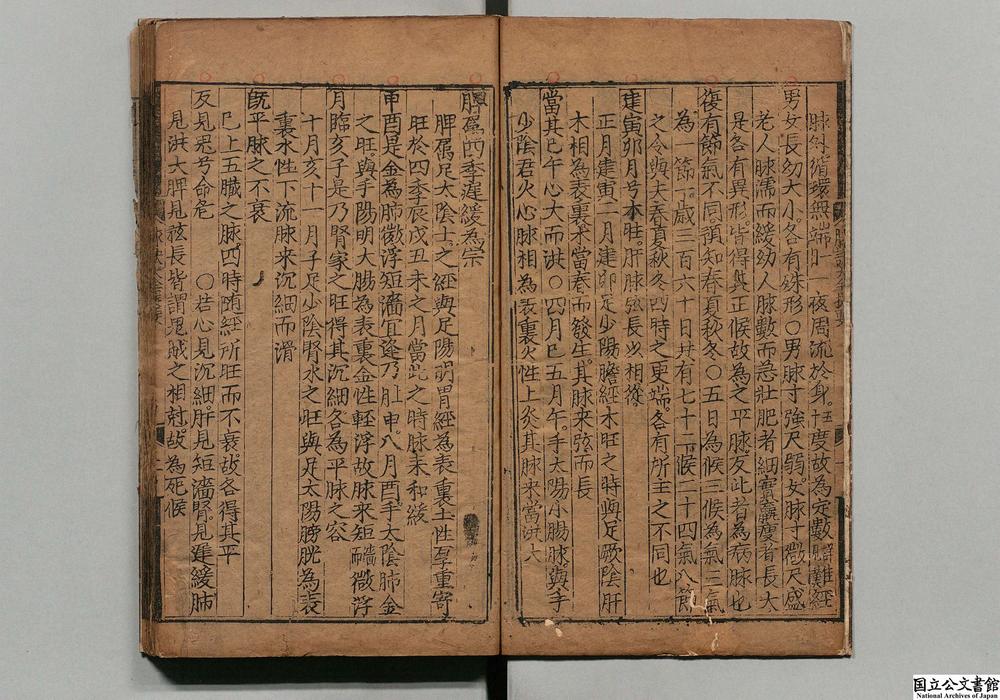 脉斜循環無端肝一夜周流於身五十度故為定數詳難經
男女長幼大小各有殊形〇男脉寸強尺弱女脉寸微尺盛
老人脉濡而緩幼人脉數而急壯肥者細實羸瘦者長大
是各有異形皆得其正候故為之平脉反此者為病脉也
復有節氣不同預知春夏秋冬〇五日為候三候為氣三氣
為一節一歲三百六十日共有七十二候二十四氣八節
之令與夫春夏秋冬四時之更端各有所主之不同也
建寅卯月兮木旺肝脉弦長以相從
正月建寅二月建卯足少陽膽經木旺之時與足厥陰肝
木相為表裏木當春而發生其脉来弦而長
當其巳午心大而洪〇四月巳五月午手太陽小腸脉與手
少陰君火心脉相為表裏火性上炎其脉來當洪大
脾属四季遲緩為宗
脾属足太陰土之經與足陽明胃經為表裏土性厚重寄
旺於四季辰戌丑未之月當此之時脉来和緩
申酉是金為肺微浮短濇宜逢乃肚申八月酉手太陰肺金
之旺與手陽明大腸為表裏金性輕浮故脉來短濇微浮
月臨亥子是乃腎家之旺得其沉細各為平脉之容
十月亥十一月子足少陰腎水之旺與足太陽膀胱為表
裏水性下流脉来沉細而滑
既平脉之不衰
巳上五臟之脉四時随經所旺而不衰故各得其平
反見鬼兮命危 〇若心見沉細肝見短濇腎見遲緩肺
見洪大脾見弦長皆謂鬼賊之相尅故為死候
国立公文書館
National Archives of Japan